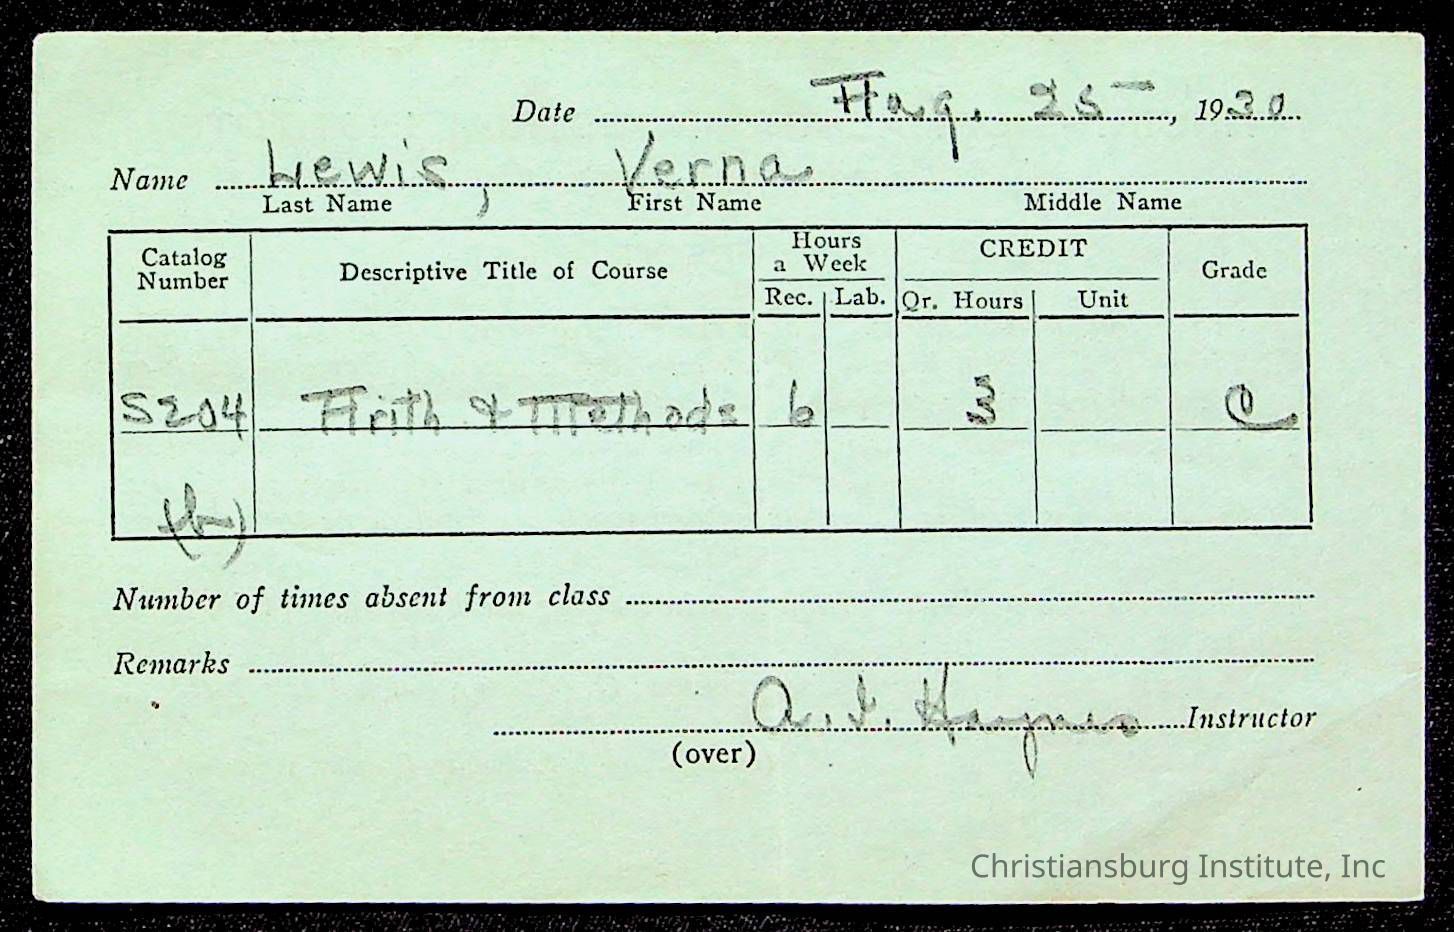 Date Aug. 25, 1930
Name Lewis, Verna
Last Name First Name Middle Name
Catalog Number Descriptive Title of Course Hours a Week CREDIT Grade
Rec. Lab. Qr. Hours Unit
S204 Arith & Methods 6 3 C
(b)
Number of times absent from class
Remarks
A. I. Haynes Instructor
(over)
Christiansburg Institute, Inc